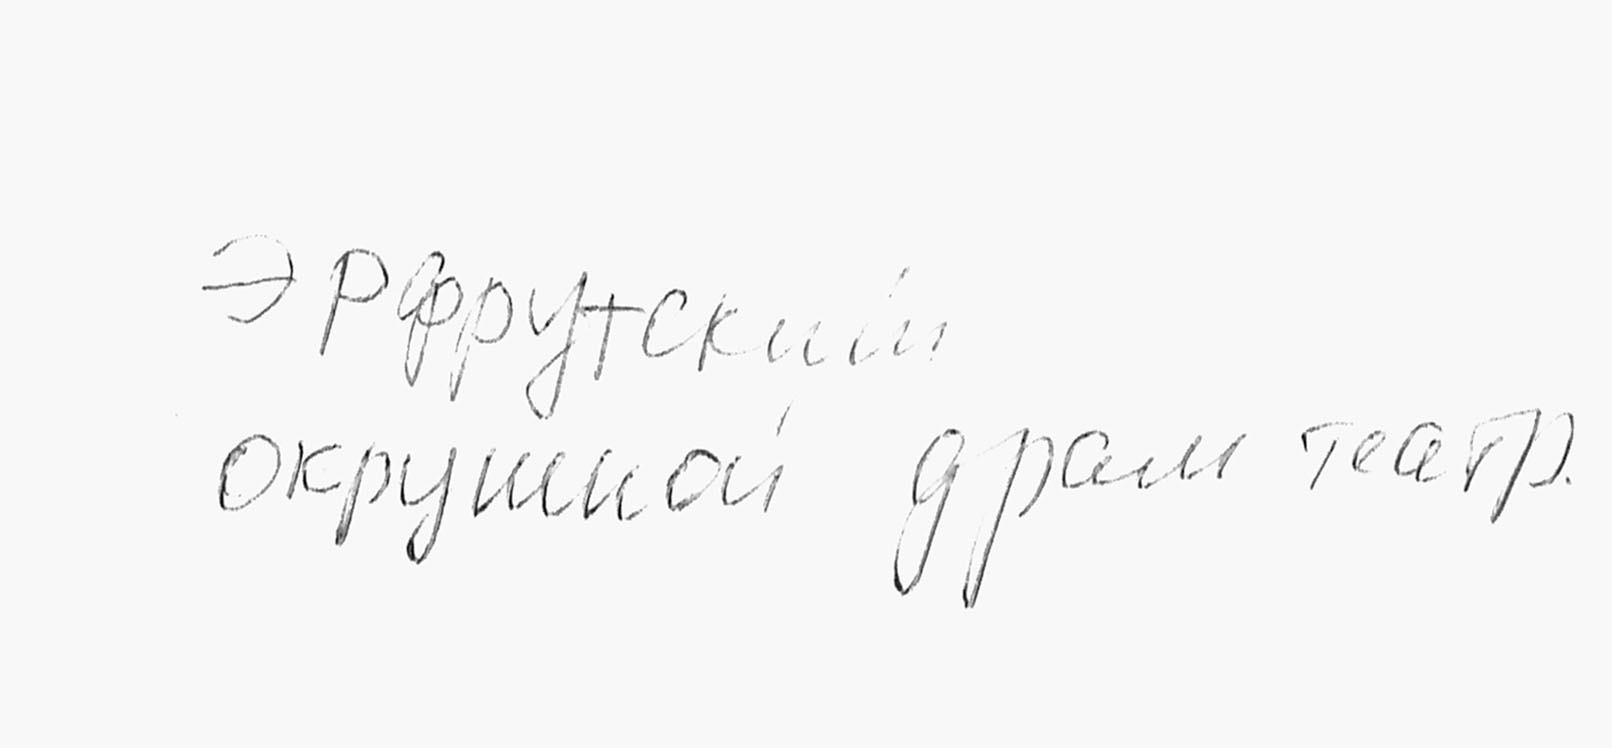 Эрфрутский
окрушной драм театр.